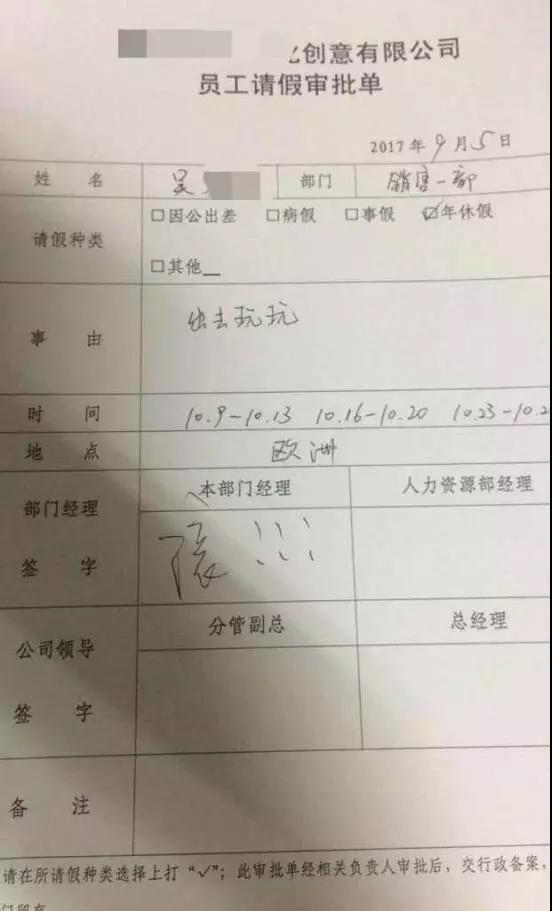 创意有限公司
员工请假审批单
2017年9月5日
姓 名 吴 部门 销售一部
请假种类 □因公出差 □病假 □事假 ☑年休假
□其他
事 由 出去玩玩
时 间 10.9-10.13 10.16-10.20 10.23-10.2
地 点 欧洲
部门经理 本部门经理 人力资源部经理
签 字 !!!
公司领导 分管副总 总经理
签 字
备 注
请在所请假种类选择上打“√”；此审批单经相关负责人审批后，交行政备案，
门留存